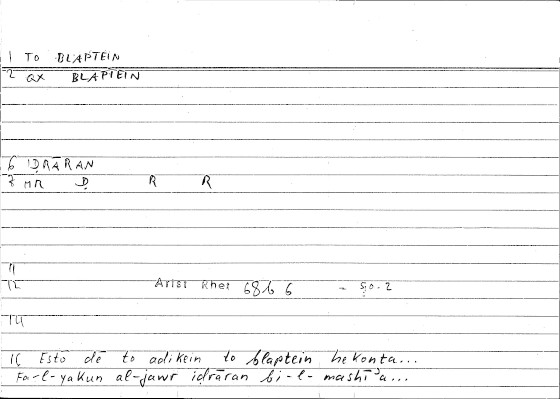 1 TO BLAPTEIN
2 GX BLAPTEIN
6 IḌRĀRAN
8 MR Ḍ R R
11
12 Arist Rhet 68b6 - 50.2
14
16 Estō dē to adikein to blaptein hekonta...
Fa-l-yakun al-jawr iḍrāran bi-l-mashīʾa...